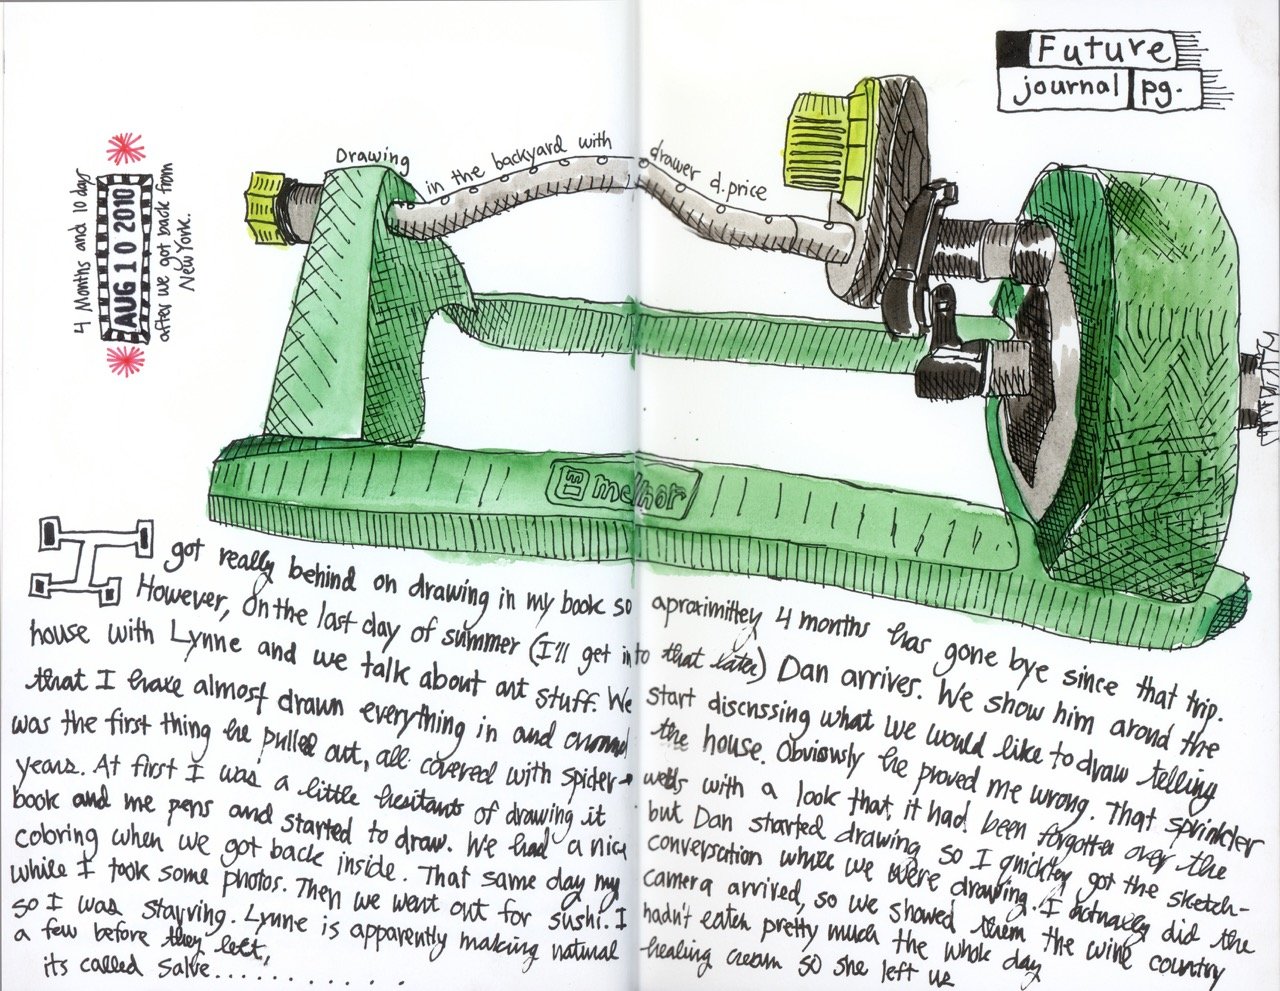 Future
journal pg.
Drawing in the backyard with drawer d.price
4 Months and 10 days
AUG 10 2010
after we got back from
New York.
melhor
I got really behind on drawing in my book so aproximittey 4 months has gone bye since that trip.
However, On the last day of summer (I'll get into that later) Dan arrives. We show him arond the
house with Lynne and we talk about art stuff. We start discussing what we would like to draw telling
that I have almost drawn everything in and around the house. Obviously he proved me wrong. That sprinkler
was the first thing he pulled out, all covered with spider-webs with a look that, it had been forgotten over the
years. At first I was a little hesitants of drawing it but Dan started drawing so I quickley got the sketch-
book and me pens and started to draw. We had a nice conversation while we were drawing. I actually did the
coloring when we got back inside. That same day my camera arrived, so we showed them the wine country
while I took some photos. Then we went out for sushi. I hadn't eaten pretty much the whole day
so I was starving. Lynne is apparently making natural healing cream so she left us
a few before they left,
its called Salve..........